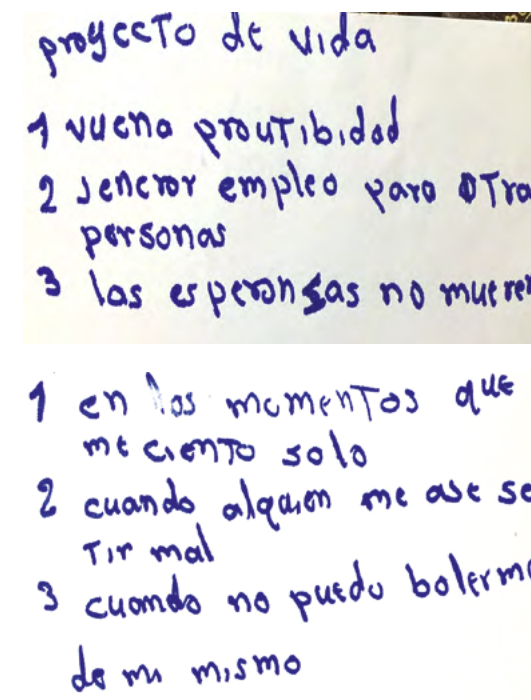 proyecto de vida
1 vuena proutibidad
2 jenerar empleo para otra
personas
3 las esperansas no mueren
1 en los momentos que
me ciento solo
2 cuando alguien me ase se
tir mal
3 cuando no puedo bolerme
de mi mismo